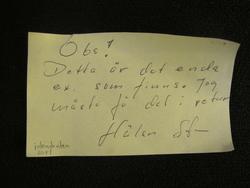 Obs!
Detta är det enda
ex. som finns. Jag
måste få det i retur
Hälsn